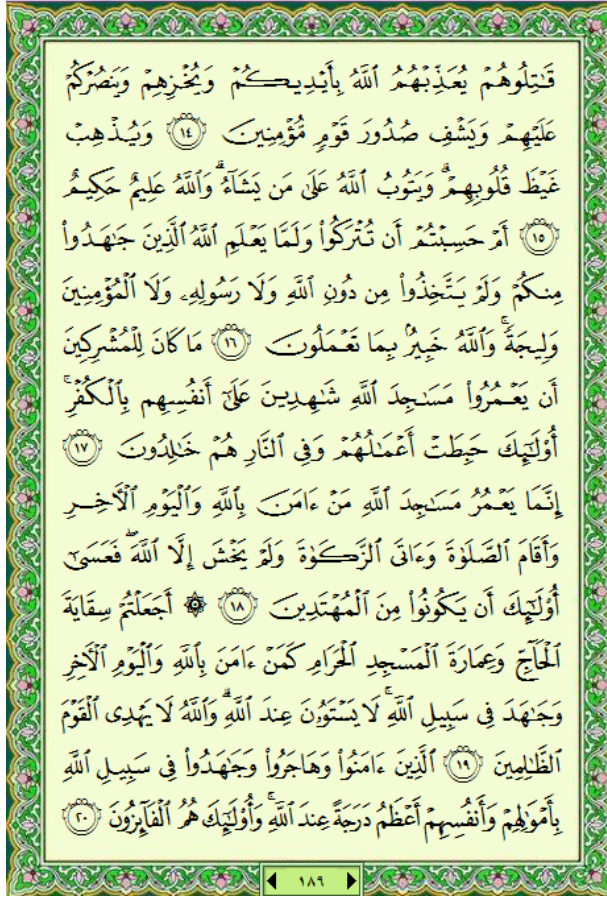 قَٰتِلُوهُمْ يُعَذِّبْهُمُ ٱللَّهُ بِأَيْدِيكُمْ وَيُخْزِهِمْ وَيَنصُرْكُمْ
عَلَيْهِمْ وَيَشْفِ صُدُورَ قَوْمٍ مُّؤْمِنِينَ ١٤ وَيُذْهِبْ
غَيْظَ قُلُوبِهِمْ ۗ وَيَتُوبُ ٱللَّهُ عَلَىٰ مَن يَشَآءُ ۗ وَٱللَّهُ عَلِيمٌ حَكِيمٌ
١٥ أَمْ حَسِبْتُمْ أَن تُتْرَكُوا۟ وَلَمَّا يَعْلَمِ ٱللَّهُ ٱلَّذِينَ جَٰهَدُوا۟
مِنكُمْ وَلَمْ يَتَّخِذُوا۟ مِن دُونِ ٱللَّهِ وَلَا رَسُولِهِۦ وَلَا ٱلْمُؤْمِنِينَ
وَلِيجَةً ۚ وَٱللَّهُ خَبِيرٌۢ بِمَا تَعْمَلُونَ ١٦ مَا كَانَ لِلْمُشْرِكِينَ
أَن يَعْمُرُوا۟ مَسَٰجِدَ ٱللَّهِ شَٰهِدِينَ عَلَىٰٓ أَنفُسِهِم بِٱلْكُفْرِ ۚ
أُو۟لَٰٓئِكَ حَبِطَتْ أَعْمَٰلُهُمْ وَفِى ٱلنَّارِ هُمْ خَٰلِدُونَ ١٧
إِنَّمَا يَعْمُرُ مَسَٰجِدَ ٱللَّهِ مَنْ ءَامَنَ بِٱللَّهِ وَٱلْيَوْمِ ٱلْءَاخِرِ
وَأَقَامَ ٱلصَّلَوٰةَ وَءَاتَى ٱلزَّكَوٰةَ وَلَمْ يَخْشَ إِلَّا ٱللَّهَ ۖ فَعَسَىٰٓ
أُو۟لَٰٓئِكَ أَن يَكُونُوا۟ مِنَ ٱلْمُهْتَدِينَ ١٨ ۞ أَجَعَلْتُمْ سِقَايَةَ
ٱلْحَآجِّ وَعِمَارَةَ ٱلْمَسْجِدِ ٱلْحَرَامِ كَمَنْ ءَامَنَ بِٱللَّهِ وَٱلْيَوْمِ ٱلْءَاخِرِ
وَجَٰهَدَ فِى سَبِيلِ ٱللَّهِ ۚ لَا يَسْتَوُۥنَ عِندَ ٱللَّهِ ۗ وَٱللَّهُ لَا يَهْدِى ٱلْقَوْمَ
ٱلظَّٰلِمِينَ ١٩ ٱلَّذِينَ ءَامَنُوا۟ وَهَاجَرُوا۟ وَجَٰهَدُوا۟ فِى سَبِيلِ ٱللَّهِ
بِأَمْوَٰلِهِمْ وَأَنفُسِهِمْ أَعْظَمُ دَرَجَةً عِندَ ٱللَّهِ ۚ وَأُو۟لَٰٓئِكَ هُمُ ٱلْفَآئِزُونَ ٢٠
١٨٩